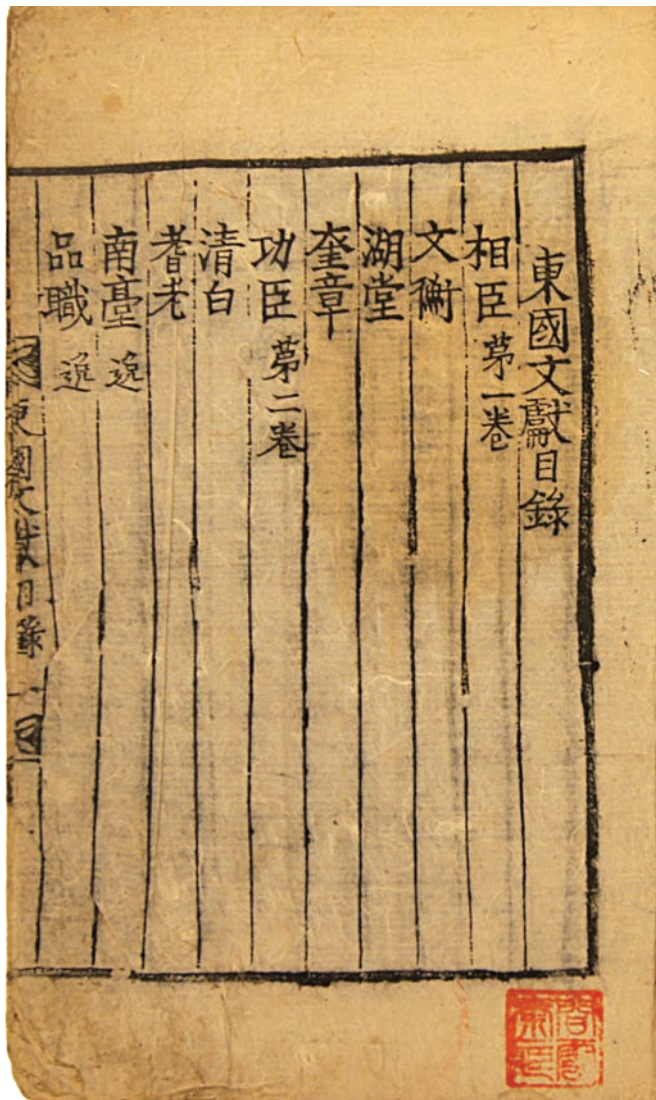 東國文獻目錄
相臣 苐一卷
文衡
湖堂
奎章
功臣 苐二卷
清白
耆老
南臺 逸
品職 逸
東國文獻目錄 一